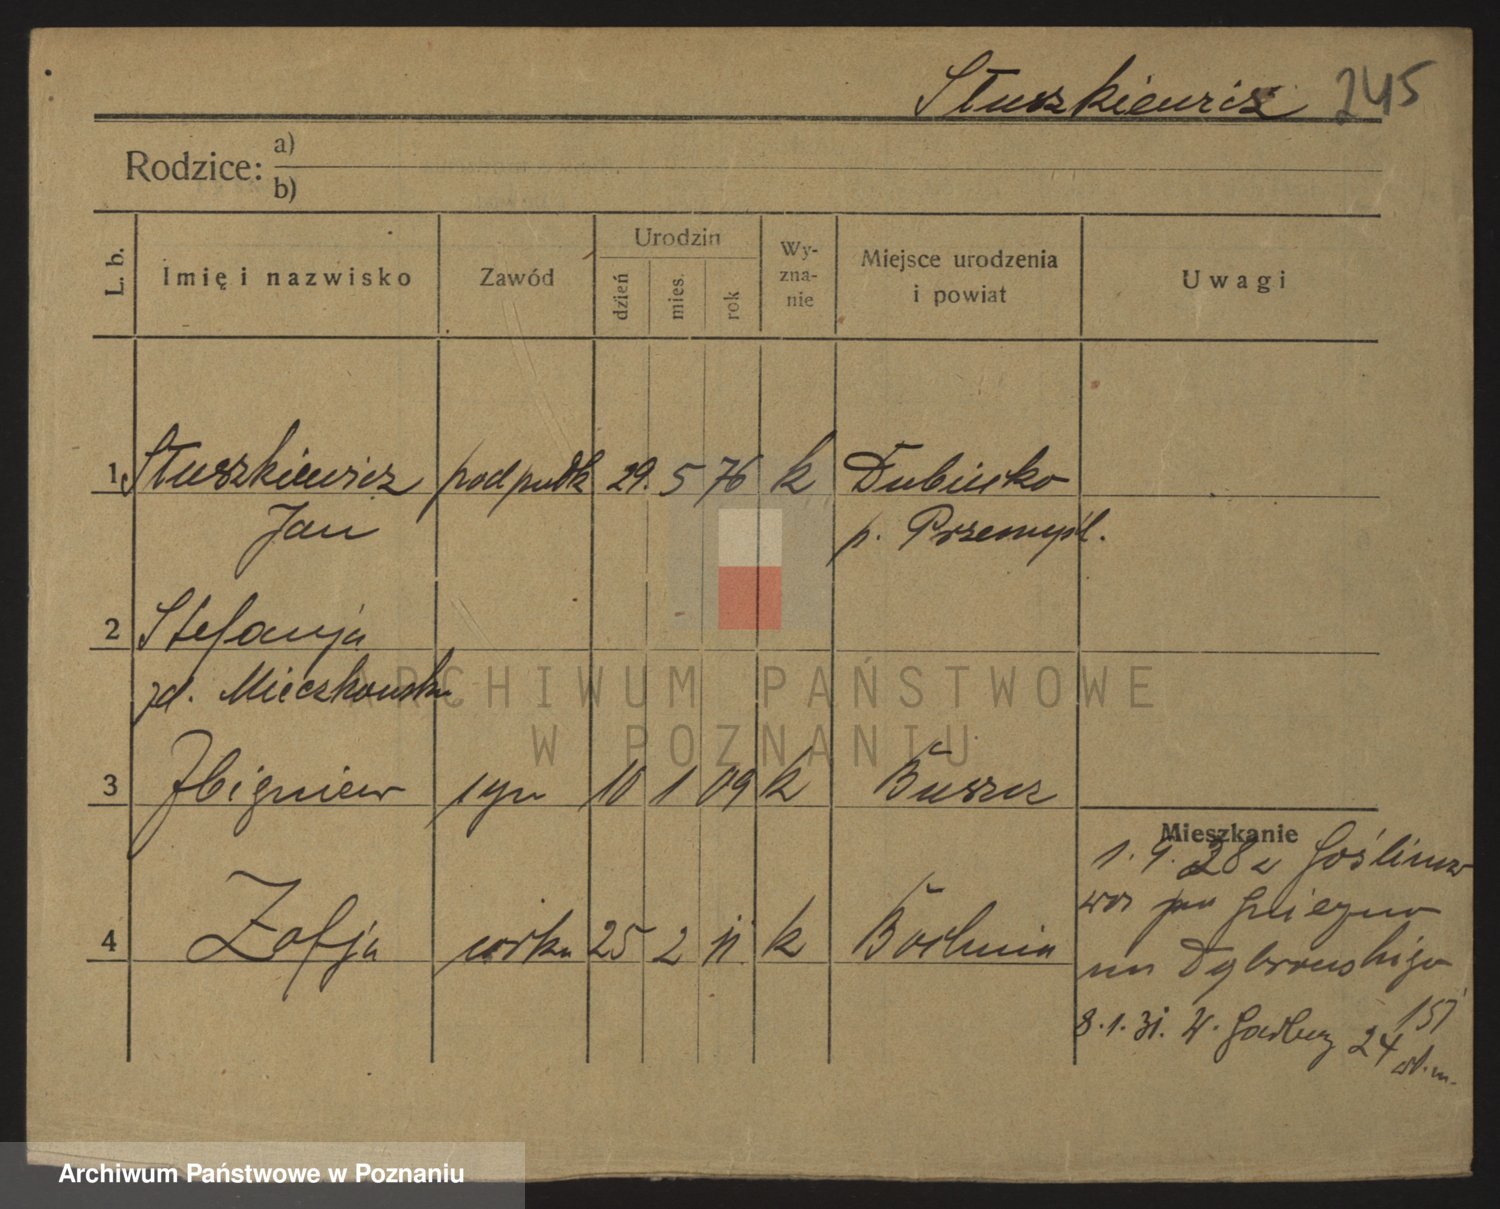 Słuszkiewicz 245
Rodzice: a)
b)
L. b. Imię i nazwisko Zawód Urodzin dzień mies. rok Wy-zna-nie Miejsce urodzenia i powiat Uwagi
1 Słuszkiewicz podpułk 29. 5 76 k Dubiecko
Jan p. Przemyśl.
2 Stefanja
zd. Mieczkowska
ARCHIWUM PAŃSTWOWE
W POZNANIU
3 Zbigniew syn 10 1 09 k Buszcz
Mieszkanie
1. 9. 28 z Goślinow
4 Zofja córka 25 2 11. k Bochnia
Gniezno
Dąbrowskiego
151
8.1.31. W. 24
Archiwum Państwowe w Poznaniu